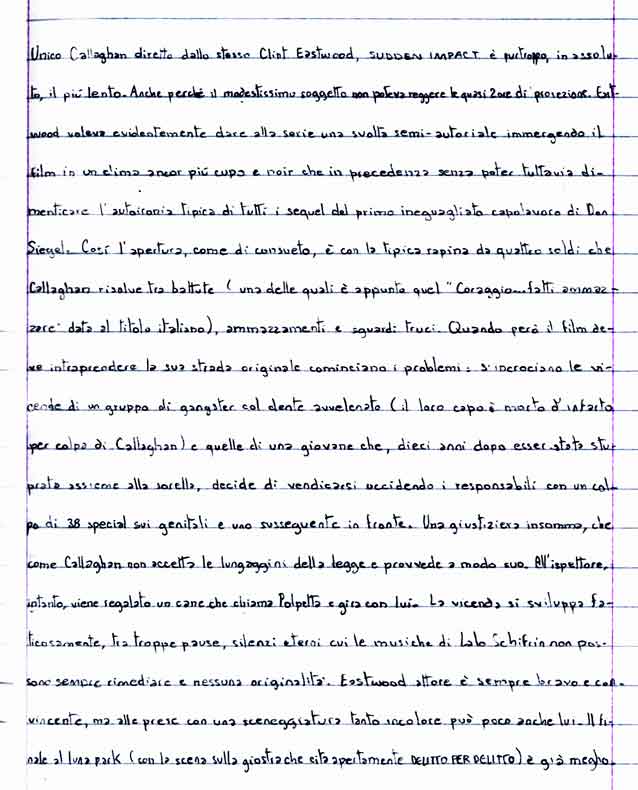 Unico Callaghan diretto dallo stesso Clint Eastwood, SUDDEN IMPACT è purtroppo, in assolu-
to, il più lento. Anche perché il modestissimo soggetto non poteva reggere le quasi 2 ore di proiezione. East-
wood voleva evidentemente dare alla serie una svolta semi-autoriale immergendo il
film in un clima ancor più cupo e noir che in precedenza senza poter tuttavia di-
menticare l'autoironia tipica di tutti i sequel del primo ineguagliato capolavoro di Don
Siegel. Così l'apertura, come di consueto, è con la tipica rapina da quattro soldi che
Callaghan risolve tra battute (una delle quali è appunto quel "Coraggio...fatti ammaz-
zare" data al titolo italiano), ammazzamenti e sguardi truci. Quando però il film de-
ve intraprendere la sua strada originale cominciano i problemi: s'incrociano le vi-
cende di un gruppo di gangster col dente avvelenato (il loro capo è morto d'infarto
per colpa di Callaghan) e quelle di una giovane che, dieci anni dopo esser stata stu-
prata assieme alla sorella, decide di vendicarsi uccidendo i responsabili con un col-
po di 38 special sui genitali e uno susseguente in fronte. Una giustiziera insomma, che
come Callaghan non accetta le lungaggini della legge e provvede a modo suo. All'ispettore,
intanto, viene regalato un cane che chiama Polpetta e gira con lui. La vicenda si sviluppa fa-
ticosamente, tra troppe pause, silenzi eterni cui le musiche di Lalo Schifrin non pos-
sono sempre rimediare e nessuna originalità. Eastwood attore è sempre bravo e con-
vincente, ma alle prese con una sceneggiatura tanto incolore può poco anche lui. Il fi-
nale al luna park (con la scena sulla giostra che cita apertamente DELITTO PER DELITTO) è già meglio.